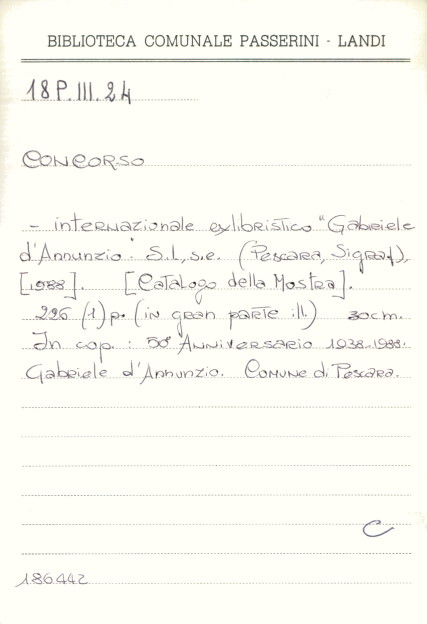 BIBLIOTECA COMUNALE PASSERINI - LANDI
18 P. III. 24
CONCORSO
- internazionale exlibristico "Gabriele
d'Annunzio". S.l., s.e. (Pescara, Sigraf),
[1988]. [Catalogo della Mostra].
226 (1) p. (in gran parte ill.) 30cm.
In cop.: 50° Anniversario 1938-1988.
Gabriele d'Annunzio. Comune di Pescara.
C
186442